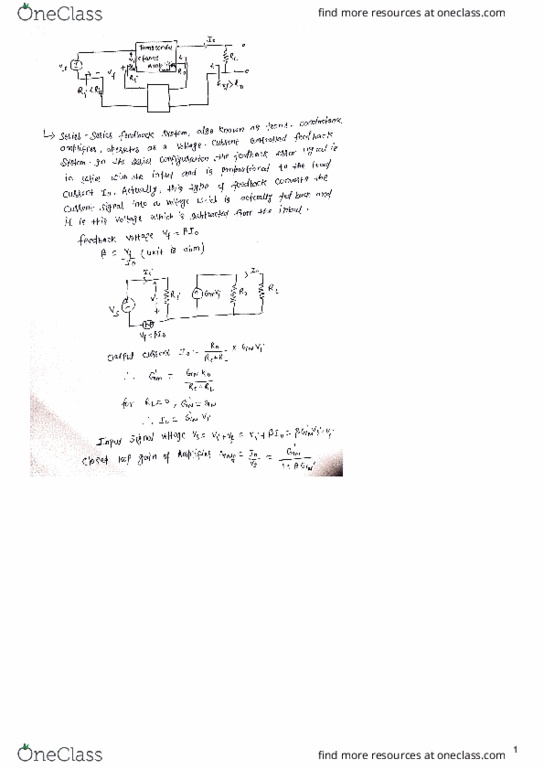 OneClass
find more resources at oneclass.com
Transcondu
ctance
amp
I0
Vs
Vf
Ri
Ro
RL
↳ Series-Series feedback system, also known as trans-conductance
amplifier, operates as a voltage-current controlled feedback
System. In the series configuration, the feedback error signal is
in series with the input and is proportional to the load
current Io. Actually, this type of feedback converts the
current signal into a voltage which is actually fed back and
it is this voltage which is subtracted from the input.
feedback voltage Vf = βIo
β = Vf/Io (unit is ohm)
Ii
Io
Vs
Vi
Ri
GmVi
Ro
RL
Vf = βIo
Output current Io = Ro/Ro+RL × Gm Vi
∴ G'm = Gm Ro/Ro+RL
for RL=0, G'm = Gm
∴ Io = G'm Vi
Input signal voltage Vs = Vi+Vf = Vi + βIo = βG'mVi + Vi
Closed loop gain of Amplifier Gmf = Io/Vs = G'm/1+βG'm
1
OneClass
find more resources at oneclass.com